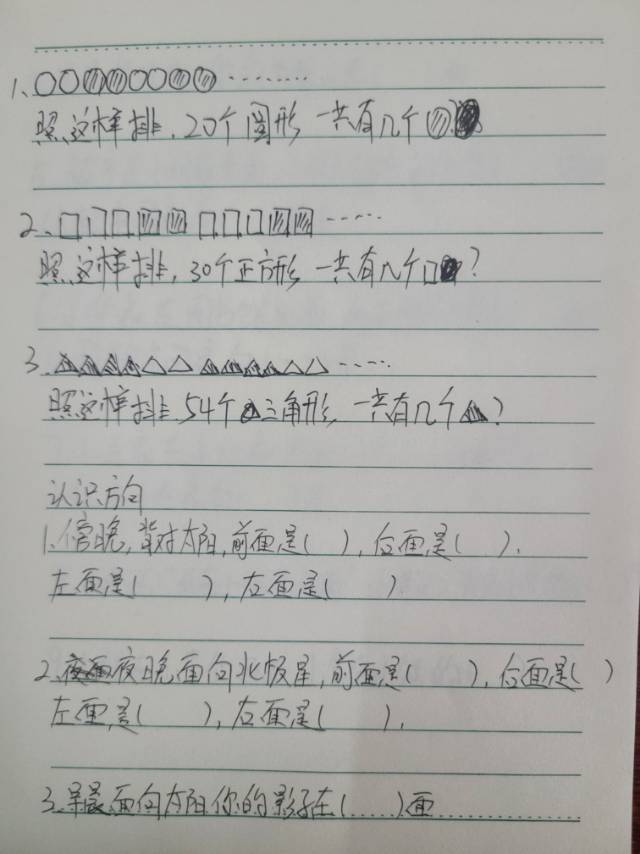 1、○○◍◍○○◍◍........
照这样排,20个圆形 一共有几个◍?
2、□□□▨▨ □□□▨▨ ......
照这样排,30个正方形 一共有几个□?
3.▲▲▲▲△△ ▲▲▲▲△△ ......
照这样排 54个三角形,一共有几个▲?
认识方向
1.傍晚,背对太阳,前面是( ),后面是( ),
左面是( ),右面是( )
2.夜晚面向北极星,前面是( ),后面是( )
左面是( ),右面是( ).
3.早晨面向太阳你的影子在( )面